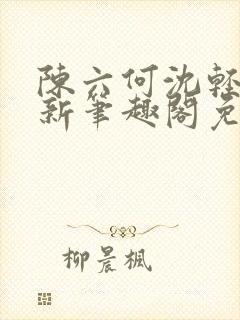 陳六何沈輕
新筆趣閣免
柳晨楓